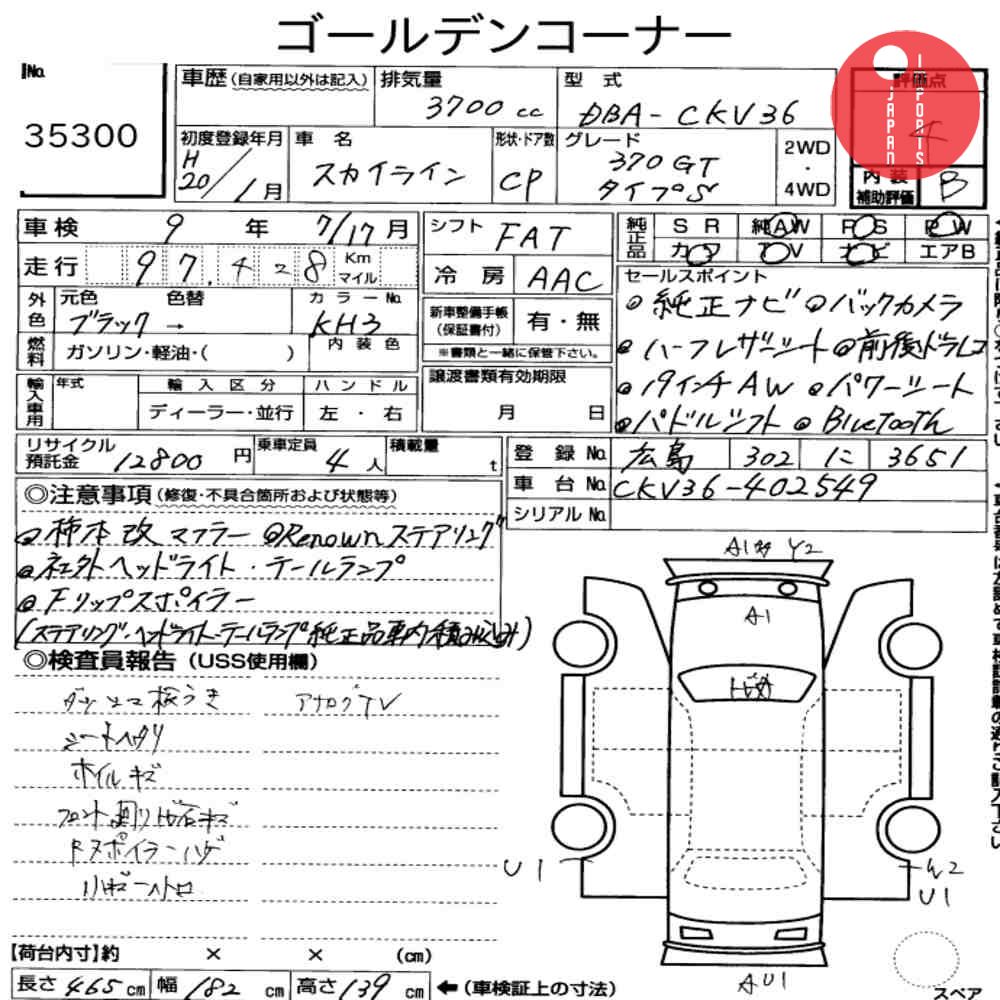 ゴールデンコーナー
No.
35300
車歴(自家用以外は記入)
排気量
3700 cc
型 式
DBA-CKV36
評価点
4
JAPAN
IMPORTS
初度登録年月
H
20/1月
車 名
スカイライン
形状・ドア数
CP
グレード
370GT
タイプS
2WD
・
4WD
内 装
補助評価
B
車検 9 年 7/17月
走行 97,428 Km
マイル
シフト FAT
冷 房 AAC
純正品
SR 純AW PS PW
カワ TV ナビ エアB
外色
元色 色替
ブラック →
カラーNo.
KH3
燃料
ガソリン・軽油・( )
内装色
新車整備手帳
(保証書付)
有・無
※書類と一緒に保管下さい。
セールスポイント
◎純正ナビ ◎バックカメラ
◎ハーフレザーシート ◎前後ドラレコ
◎19インチAW ◎パワーシート
◎パドルシフト ◎BlueTooth
輸入車用
年式
輸入区分
ディーラー・並行
ハンドル
左 ・ 右
譲渡書類有効期限
月 日
リサイクル
預託金 12800 円
乗車定員
4 人
積載量
t
登 録 No. 広島 302 に 3651
車 台 No. CKV36-402549
シリアル No.
◎注意事項(修復・不具合箇所および状態等)
◎柿本改マフラー ◎Renownステアリング
◎社外ヘッドライト・テールランプ
◎Fリップスポイラー
(ステアリング・ヘッドライト・テールランプ純正品車内積み込み)
◎検査員報告(USS使用欄)
ダッシュ板うき アナログTV
シートヘタリ
ホイルキズ
フロント廻り飛石キズ
Rスポイラーハゲ
A1 Y2
A1
U1
W2
U1
AU1
スペア
【荷台内寸】約 × × (cm)
長さ 465 cm 幅 182 cm 高さ 139 cm ←(車検証上の寸法)